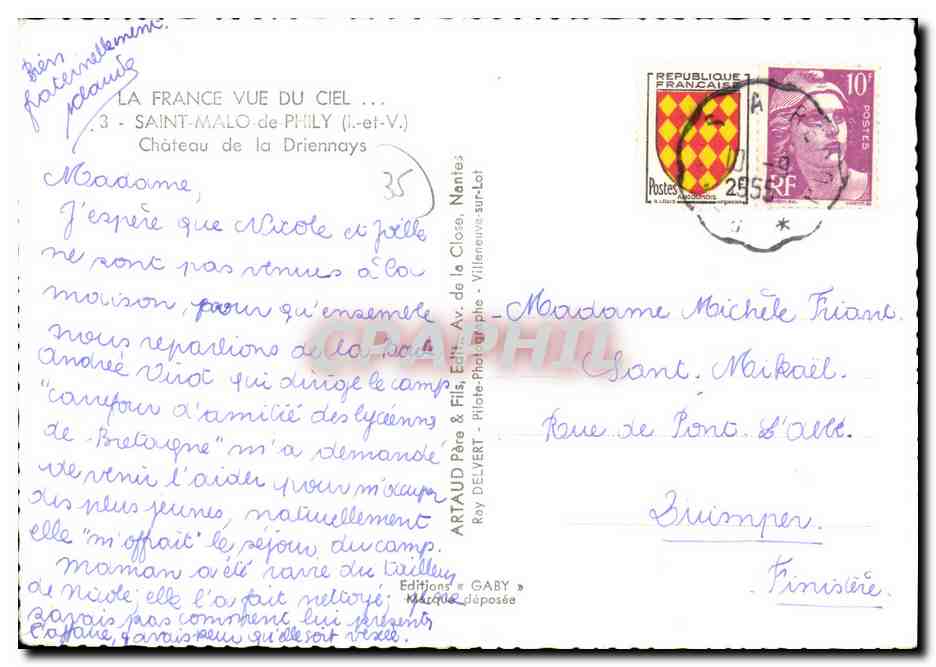 Bien
fraternellement.
Claude
LA FRANCE VUE DU CIEL ...
3 - SAINT-MALO-de-PHILY (I.-et-V.)
Château de la Driennays
35
Madame,
J'espère que Nicole et Joëlle
ne sont pas venues à la
maison, pour qu'ensemble
nous reparlions de la
Andrée Virot qui dirige le camp
"carrefour d'amitié des lycéens
de Bretagne" m'a demandé
de venir l'aider pour m'occuper
des plus jeunes, naturellement
elle "m'offrait" le séjour du camp.
Maman a été ravie du tailleur
de Nicole; elle l'a fait nettoyé; je ne
savais pas comment lui présenter
l'affaire, j'avais peur qu'elle soit vexée.
ARTAUD Père & Fils, Edit., Av. de la Close, Nantes
Ray DELVERT - Pilote-Photographe - Villeneuve-sur-Lot
Editions « GABY »
Marque déposée
REPUBLIQUE
FRANÇAISE
Postes
ANGOUMOIS
10F
POSTES
RF
1955
CPAPHIL
Madame Michèle Friant.
Sant. Mikaël.
Rue de Pont L'abbé.
Quimper.
Finistère.